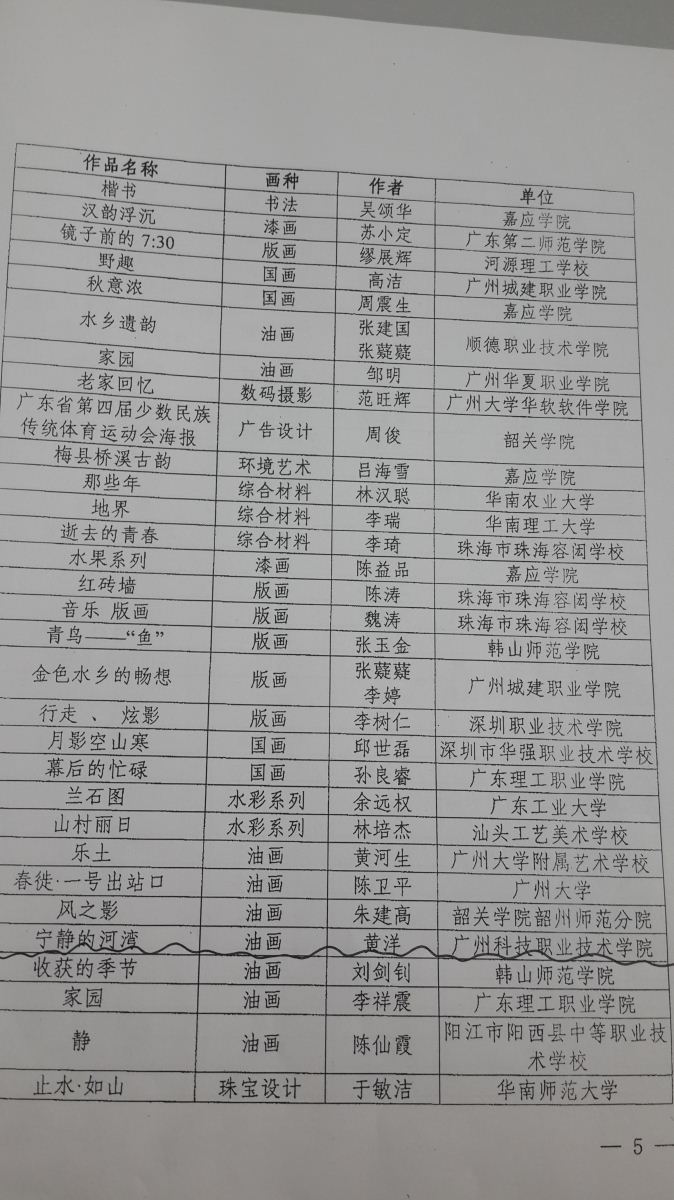 作品名称 画种 作者 单位
楷书 书法 吴颂华 嘉应学院
汉韵浮沉 漆画 苏小定 广东第二师范学院
镜子前的 7:30 版画 缪展辉 河源理工学校
野趣 国画 高洁 广州城建职业学院
秋意浓 国画 周震生 嘉应学院
水乡遗韵 油画 张建国 顺德职业技术学院
张薿薿
家园 油画 邹明 广州华夏职业学院
老家回忆 数码摄影 范旺辉 广州大学华软软件学院
广东省第四届少数民族
传统体育运动会海报 广告设计 周俊 韶关学院
梅县桥溪古韵 环境艺术 吕海雪 嘉应学院
那些年 综合材料 林汉聪 华南农业大学
地界 综合材料 李瑞 华南理工大学
逝去的青春 综合材料 李琦 珠海市珠海容闳学校
水果系列 漆画 陈益品 嘉应学院
红砖墙 版画 陈涛 珠海市珠海容闳学校
音乐 版画 版画 魏涛 珠海市珠海容闳学校
青鸟——“鱼” 版画 张玉金 韩山师范学院
金色水乡的畅想 版画 张薿薿 广州城建职业学院
李婷
行走 、 炫影 版画 李树仁 深圳职业技术学院
月影空山寒 国画 邱世磊 深圳市华强职业技术学校
幕后的忙碌 国画 孙良睿 广东理工职业学院
兰石图 水彩系列 余远权 广东工业大学
山村丽日 水彩系列 林培杰 汕头工艺美术学校
乐土 油画 黄河生 广州大学附属艺术学校
春徙·一号出站口 油画 陈卫平 广州大学
风之影 油画 朱建高 韶关学院韶州师范分院
宁静的河湾 油画 黄洋 广州科技职业技术学院
收获的季节 油画 刘剑钊 韩山师范学院
家园 油画 李祥震 广东理工职业学院
静 油画 陈仙霞 阳江市阳西县中等职业技
术学校
止水·如山 珠宝设计 于敏洁 华南师范大学
— 5 —